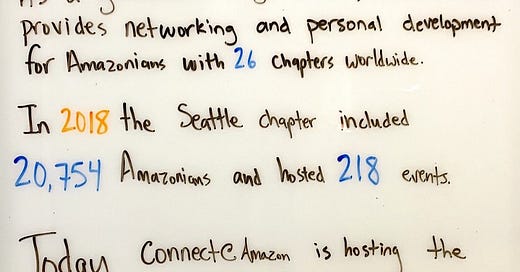 provides networking and personal development
for Amazonians with 26 chapters worldwide.
In 2018 the Seattle chapter included
20,754 Amazonians and hosted 218 events.
Today Connect@Amazon is hosting the